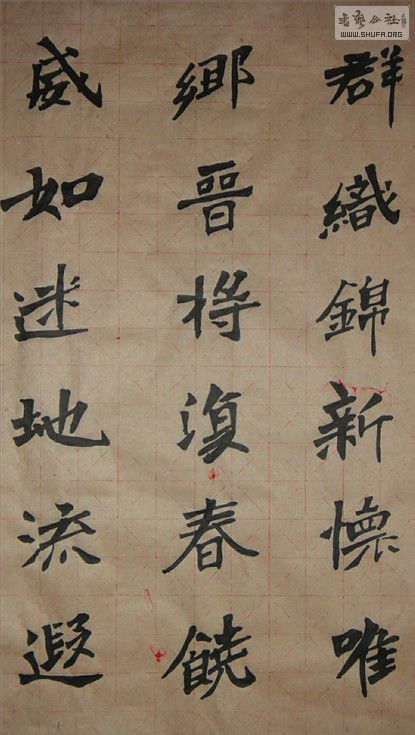 群織錦新懷唯
鄉晉将復春饒
威如迷地流遐
書藝公社
WWW.SHUFA.ORG